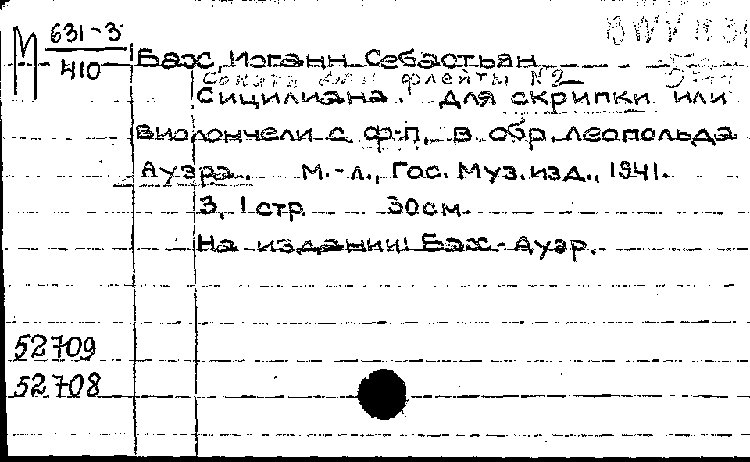 М 631-3
410
BWV
Бах, Иоганн Себастьян
Соната для флейты №2
Сицилиана. Для скрипки или
виолончели с ф-п, в обр. Леопольда
Ауэра. М.-Л., Гос. Муз. изд., 1941.
3, 1 стр. 30 см.
На издании: Бах-Ауэр.
52709
52708